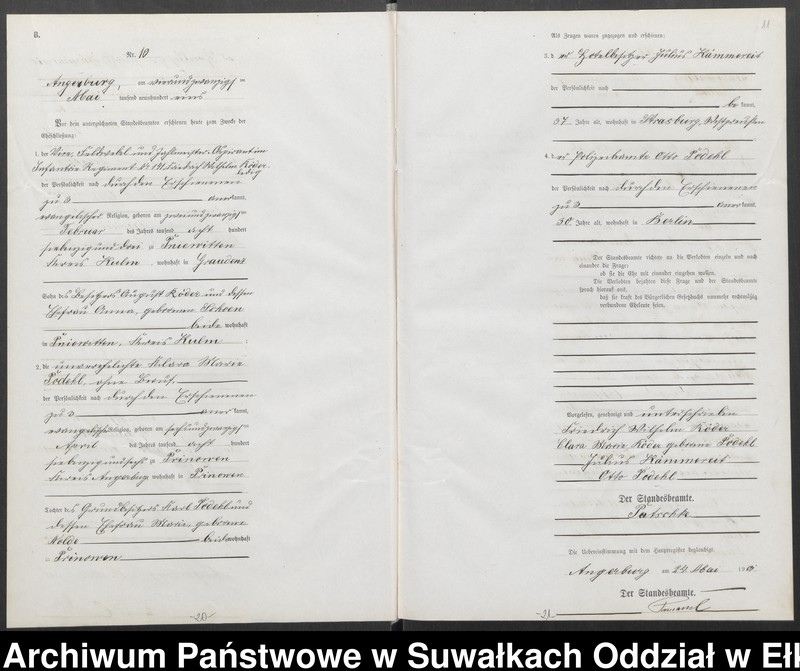 B.
Nr. 10
Angerburg, am vierundzwanzigs=
ten Mai tausend neunhundert eins
Vor dem unterzeichneten Standesbeamten erschienen heute zum Zwecke der
Eheschließung:
1. der Vice Feldwebel und Zahlmeister-Aspirant im
Infanterie Regiment No 141, Friedrich Wilhelm Röder
ledig
der Persönlichkeit nach durch den Erschienenen
zu 3 anerkannt,
evangelischer Religion, geboren am zweiundzwanzigs=
ten Februar des Jahres tausend acht hundert
siebenzigunddrei zu Pniewitten
Kreis Kulm, wohnhaft in Graudenz
Sohn des Besitzers August Röder und dessen
Ehefrau Anna, geborenen
beide wohnhaft
in Pniewitten, Kreis Kulm;
2. die unverehelichte Klara Marie
Podehl, ohne Beruf
der Persönlichkeit nach durch den Erschienenen
zu 3 anerkannt,
evangelischer Religion, geboren am sechsundzwanzigs=
ten April des Jahres tausend acht hundert
siebenzigundsechs zu Prinowen
Kreis Angerburg wohnhaft in Prinowen
Tochter des Grundbesitzers Karl Podehl und
dessen Ehefrau Marie, geborene
Nolde beide wohnhaft
in Prinowen
-20-
11
Als Zeugen waren zugezogen und erschienen:
3. der Hotelbesitzer Julius Kämmereit
der Persönlichkeit nach
bekannt,
37 Jahre alt, wohnhaft in Strasburg, Westpreußen
4. der Polizeibeamte Otto Podehl
der Persönlichkeit nach durch den Erschienenen
zu 3 anerkannt,
30 Jahre alt, wohnhaft in Berlin
Der Standesbeamte richtete an die Verlobten einzeln und nach
einander die Frage:
ob sie die Ehe mit einander eingehen wollen.
Die Verlobten bejahten diese Frage und der Standesbeamte
sprach hierauf aus,
daß sie kraft des Bürgerlichen Gesetzbuchs nunmehr rechtmäßig
verbundene Eheleute seien.
Vorgelesen, genehmigt und unterschrieben
Friedrich Wilhelm Röder
Clara Marie Röder geborene Podehl
Julius Kämmereit
Otto Podehl
Der Standesbeamte.
Patschke
Die Uebereinstimmung mit dem Hauptregister beglaubigt
Angerburg am 24. Mai 190
Der Standesbeamte.
-21-
Archiwum Państwowe w Suwałkach Oddział w Eł